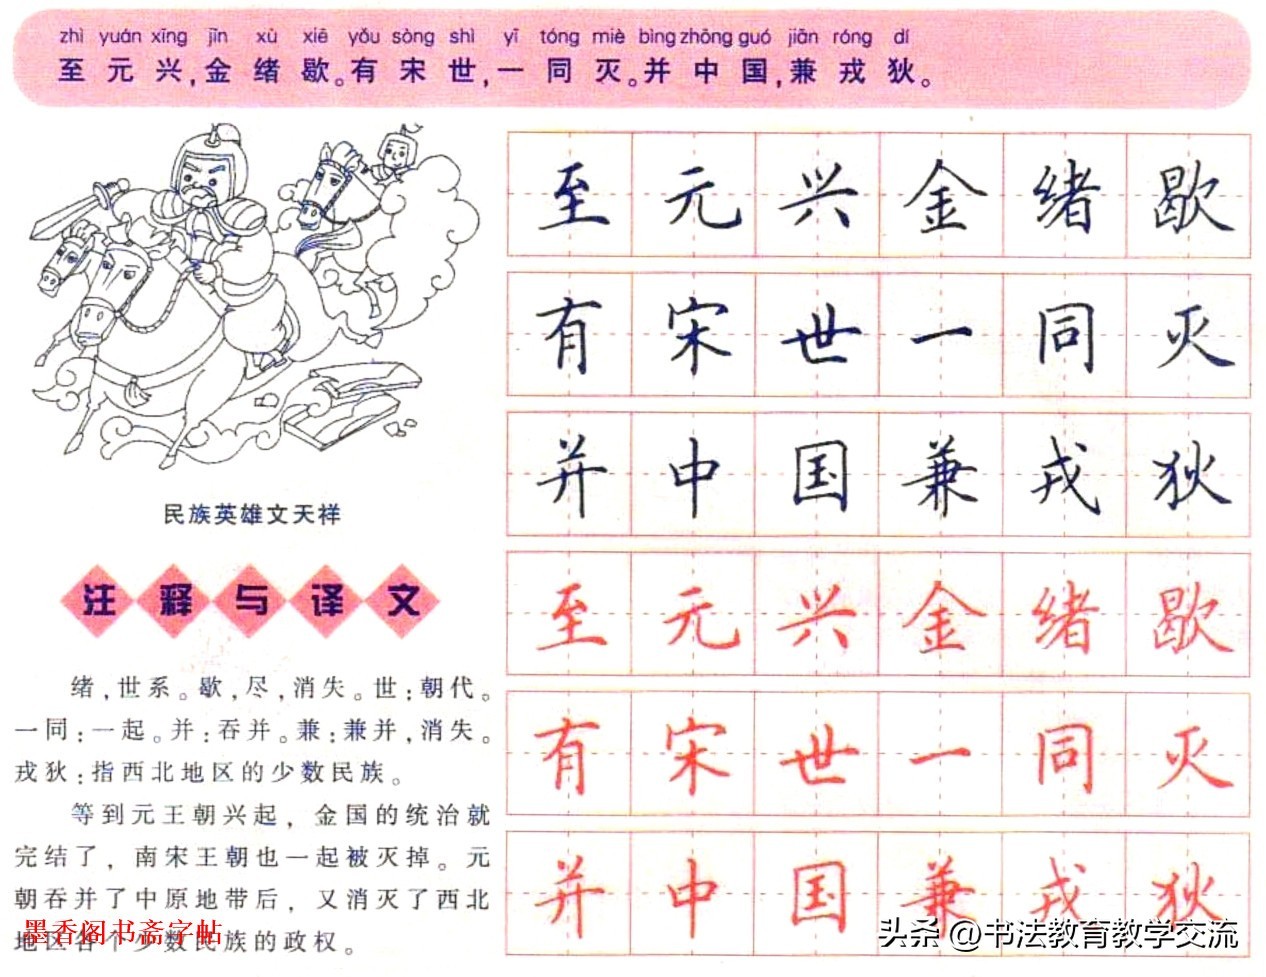 zhì yuán xīng jīn xù xiē yǒu sòng shì yī tóng miè bìng zhōng guó jiān róng dí
至元兴,金绪歇。有宋世,一同灭。并中国,兼戎狄。
至元兴金绪歇
有宋世一同灭
并中国兼戎狄
至元兴金绪歇
有宋世一同灭
并中国兼戎狄
民族英雄文天祥
注释与译文
绪,世系。歇,尽,消失。世:朝代。
一同:一起。并:吞并。兼:兼并,消失。
戎狄:指西北地区的少数民族。
等到元王朝兴起,金国的统治就
完结了,南宋王朝也一起被灭掉。元
朝吞并了中原地带后,又消灭了西北
地区各个少数民族的政权。
墨香阁书斋字帖
头条 @书法教育教学交流